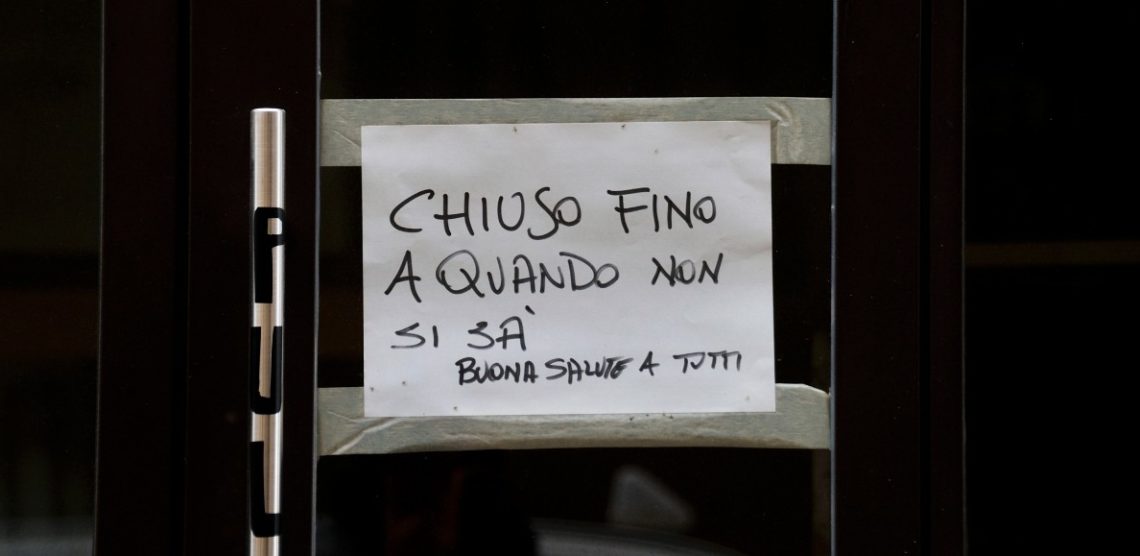 CHIUSO FINO
A QUANDO NON
SI SÀ
BUONA SALUTE A TUTTI
PULL